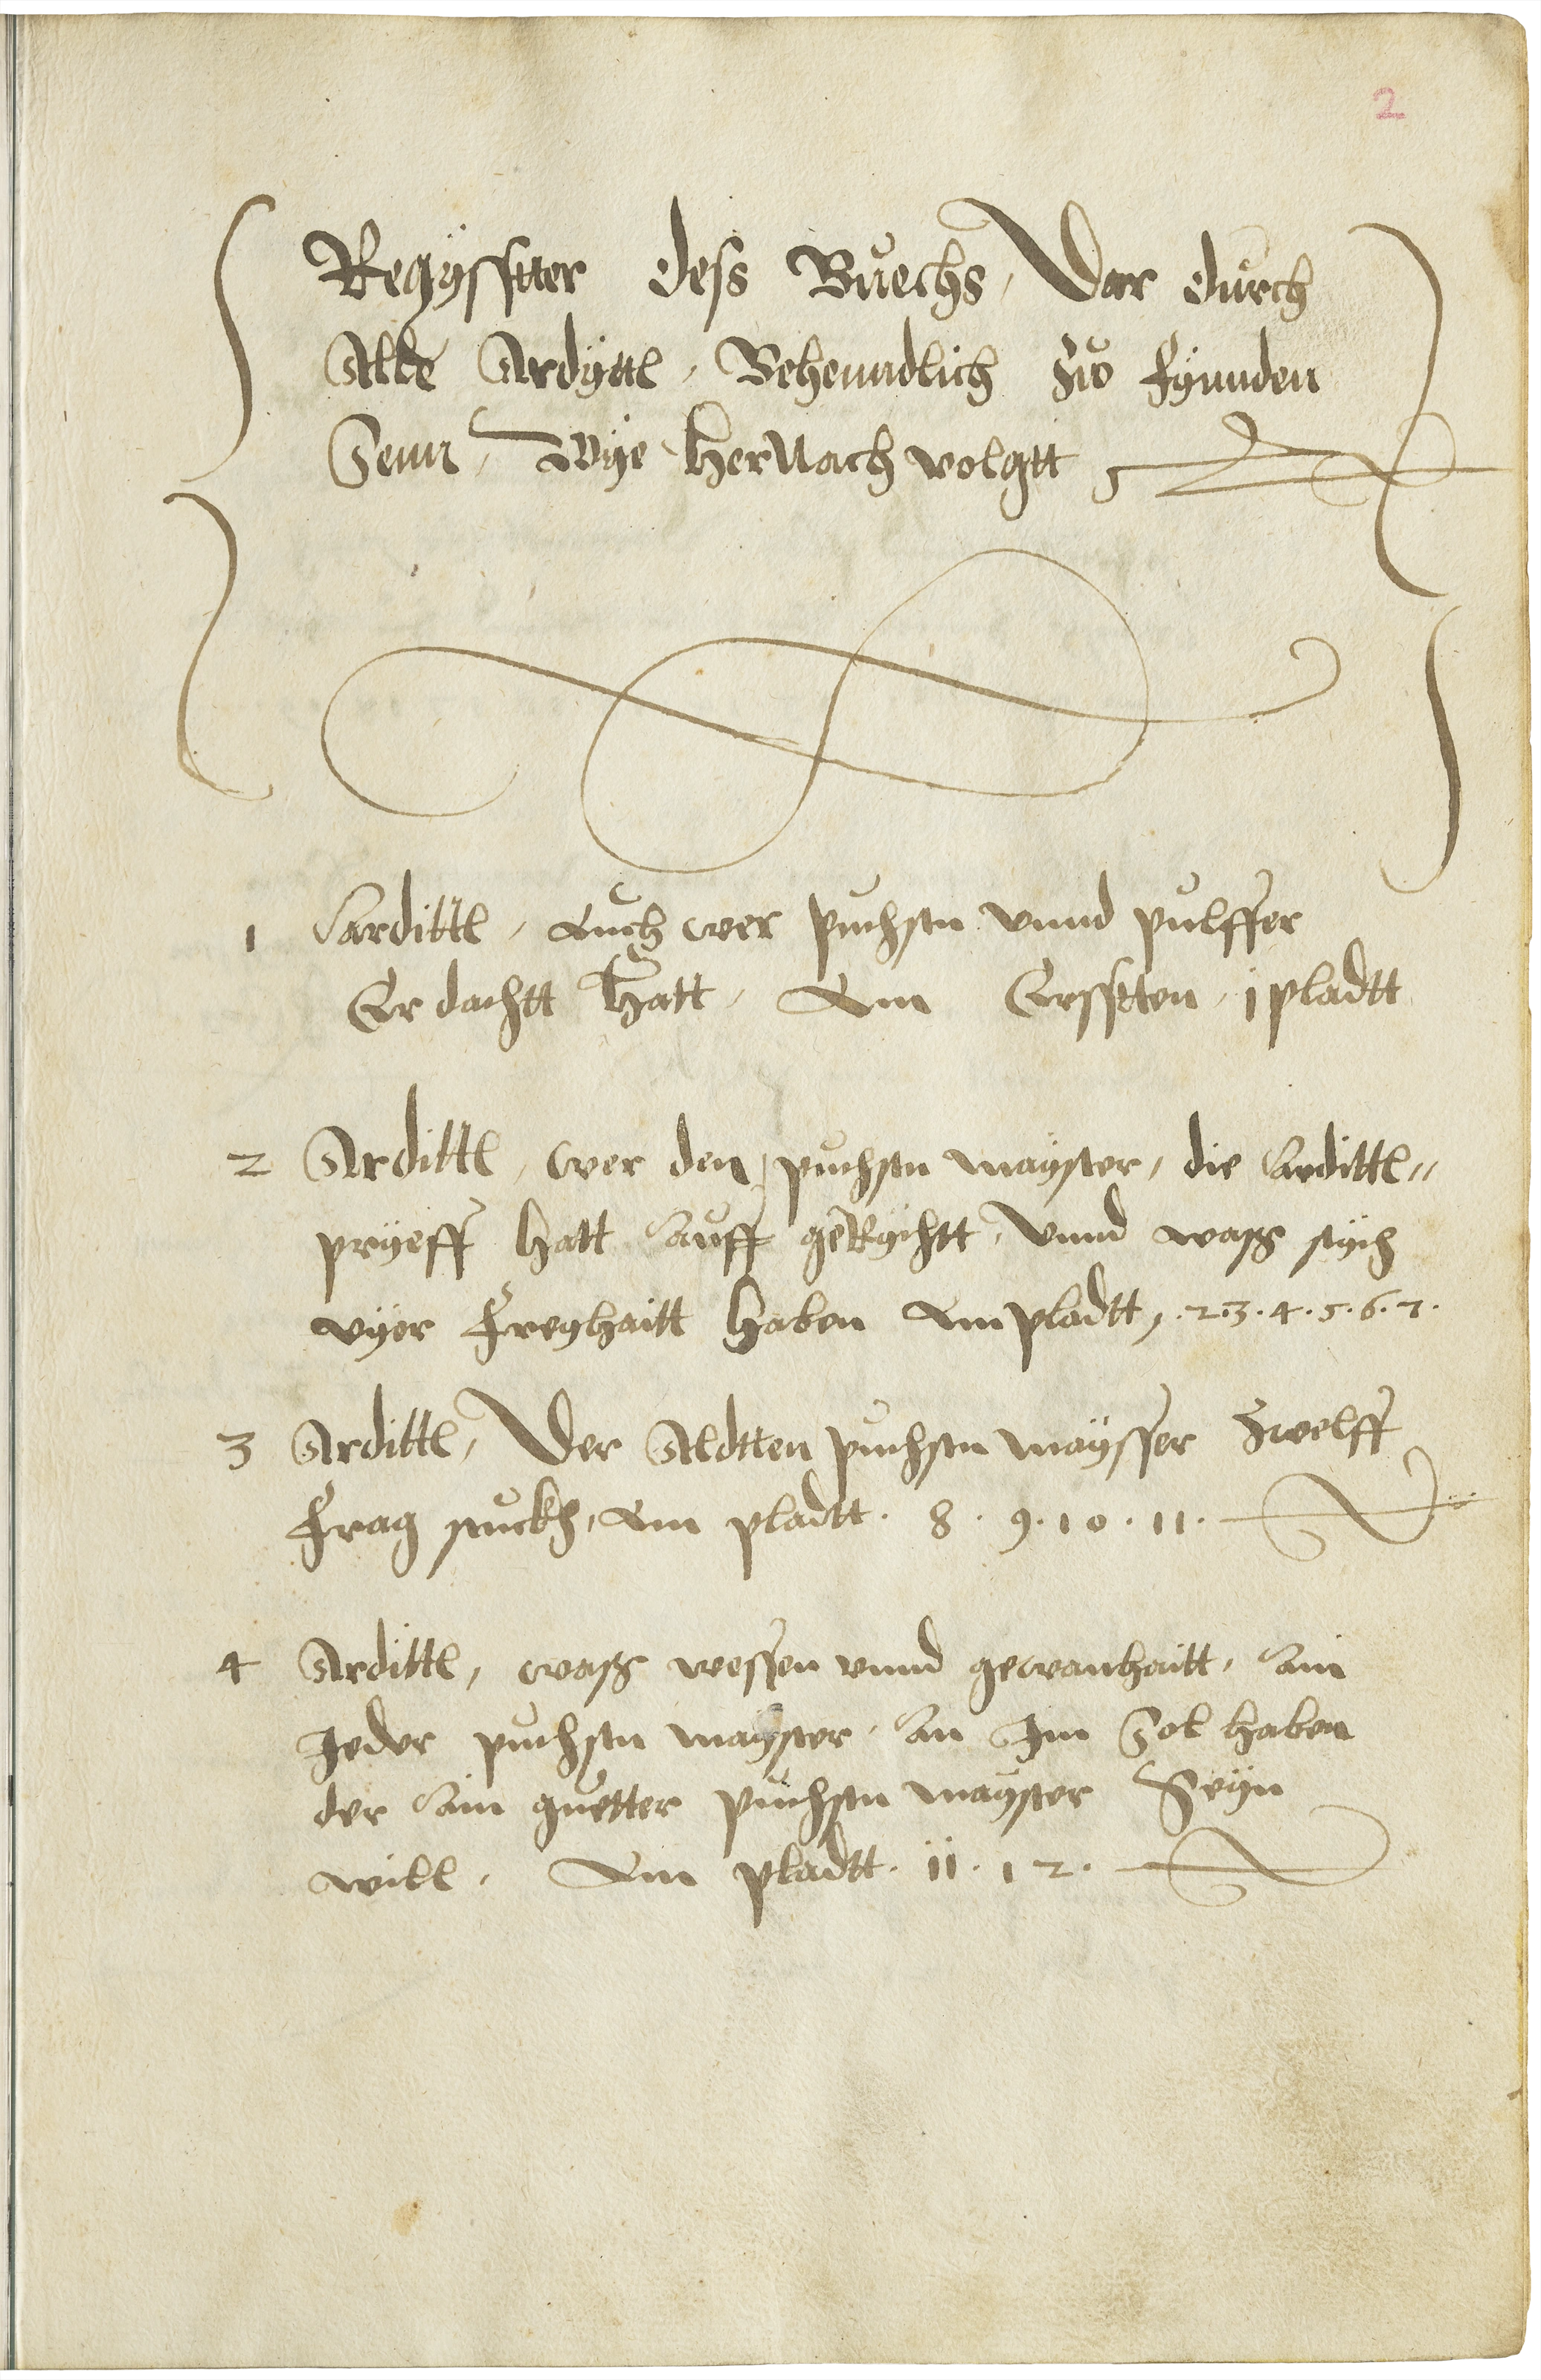 2
Regÿsstter dess Bůechs, Dar důrch
Alle Ardÿttl, Behenndlich Zůo fÿnnden
Senn, Wÿe HerNach volgtt
1 Ardittl, Auch wer puchsen vnnd pulffer
Er dachtt Hatt, Am Ersstten, j pladtt
2 Ardittl, wer den puchsen maÿster, die Ardittl„
prÿeff hatt Auff geRÿchtt, Vnnd waß sÿch
vÿer Freÿhaitt haben Am pladtt, .2.3.4.5.6.7.
3 Ardittl, Der Aldtten puchsen maÿsser Zwelff
Frag stuckh, Am pladtt. 8. 9. 10. 11.
4 Ardittl, waß wessen vnnd gewanhaitt, Ain
Jeder puchsen maÿster, An Jm Sol haben
der Ain guetter puchsen maÿster Seÿn
will, Am pladtt. 11. 12.